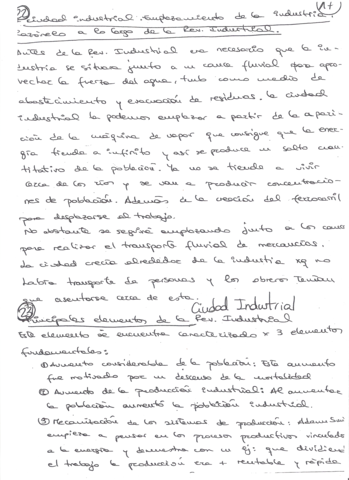 22 Ciudad industrial. Emplazamiento de la industria.
razónelo a lo largo de la Rev. industrial.
Antes de la Rev. Industrial era necesario que la in-
dustria se situara junto a un cauce fluvial para apro-
vechar la fuerza del agua, tanto como medio de
abastecimiento y evacuación de residuos. La ciudad
industrial la podemos emplazar a partir de la apari-
ción de la máquina de vapor que consigue que la ener-
gía tienda a infinito y así se produce un salto cuan-
titativo de la población. Ya no se tiende a vivir
cerca de los ríos y se van a producir concentracio-
nes de población. Además de la creación del ferrocarril
para desplazarse al trabajo.
No obstante se seguirá emplazando junto a los cauces
para realizar el transporte fluvial de mercancías.
La ciudad crecía alrededor de la industria xq no
había transporte de personas y los obreros tenían
que asentarse cerca de esta.
Ciudad Industrial
23 Principales elementos de la Rev. Industrial
Este elemento se encuentra caracterizado x 3 elementos
fundamentales:
① Aumento considerable de la población: Este aumento
fue motivado por un descenso de la mortalidad
② Aumento de la producción industrial: Al aumentar
la población aumentó la población industrial.
③ Mecanización de los sistemas de producción: Adam Smi
empieza a pensar en los procesos productivos vinculado
a la energía y demuestra con un ej: que dividiendo
el trabajo la producción era + rentable y rápida